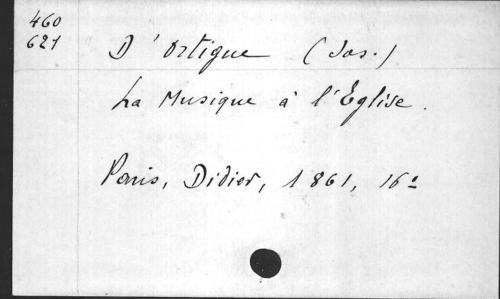 460
621
D'Ortigue (Jos.)
La Musique à l'Église.
Paris, Didier, 1861, 16º